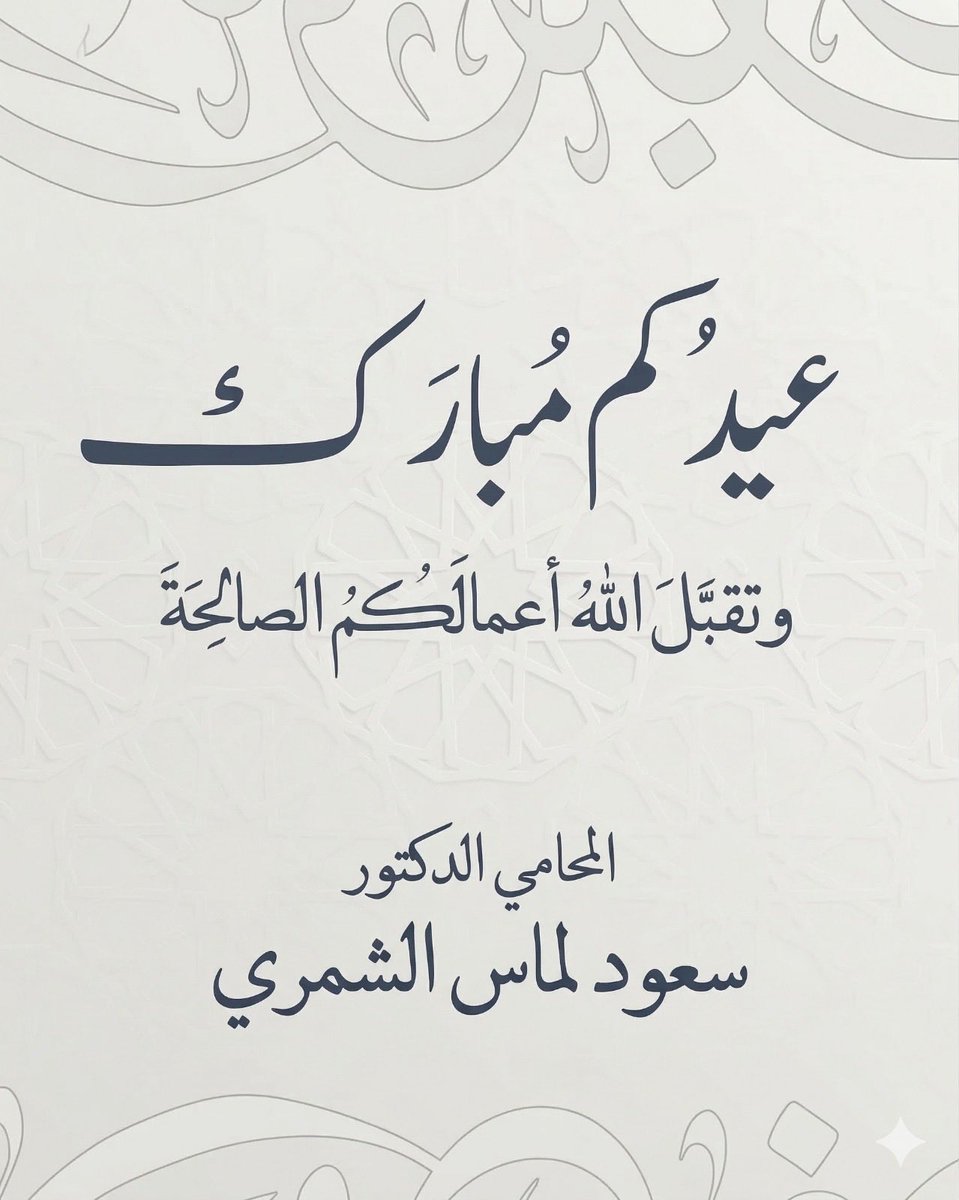 عيدُكم مُبارَك
وتقبَّلَ اللهُ أعمالَكُمُ الصالحِةَ
المحامي الدكتور
سعود لماس الشمري